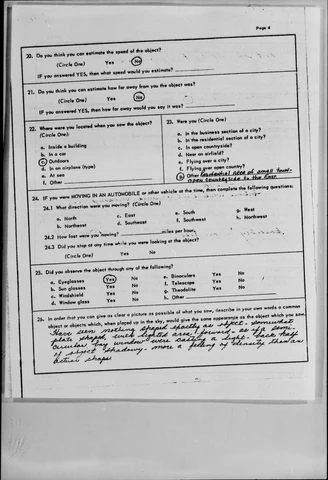 Page 4
20. Do you think you can estimate the speed of the object?
(Circle One) Yes No
IF you answered YES, then what speed would you estimate?
21. Do you think you can estimate how far away from you the object was?
(Circle One) Yes No
IF you answered YES, then how far away would you say it was?
22. Where were you located when you saw the object?
(Circle One)
a. Inside a building
b. In a car
c. Outdoors
d. In an airplane (type)
e. At sea
f. Other
23. Were you (Circle One)
a. In the business section of a city?
b. In the residential section of a city?
c. In open countryside?
d. Near an airfield?
e. Flying over a city?
f. Flying over open country?
g. Other Residential area of small town-
open countryside to the east
24. IF you were MOVING IN AN AUTOMOBILE or other vehicle at the time, then complete the following questions:
24.1 What direction were you moving? (Circle One)
a. North c. East e. South g. West
b. Northeast d. Southeast f. Southwest h. Northwest
24.2 How fast were you moving? miles per hour.
24.3 Did you stop at any time while you were looking at the object?
(Circle One) Yes No
25. Did you observe the object through any of the following?
a. Eyeglasses Yes No e. Binoculars Yes No
b. Sun glasses Yes No f. Telescope Yes No
c. Windshield Yes No g. Theodolite Yes No
d. Window glass Yes No h. Other
26. In order that you can give as clear a picture as possible of what you saw, describe in your own words a common
object or objects which, when placed up in the sky, would give the same appearance as the object which you saw.
Have seen nothing shaped exactly as object. Somewhat
plate shaped, with lighted area forward - as if a semi
circular bay window were casting a light. Back half
of object shadowy - more a feeling of density than an
actual shape